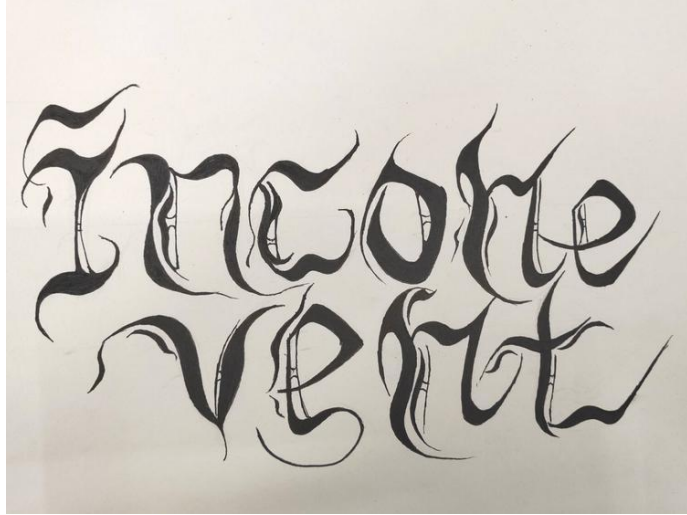 Incohe
vent